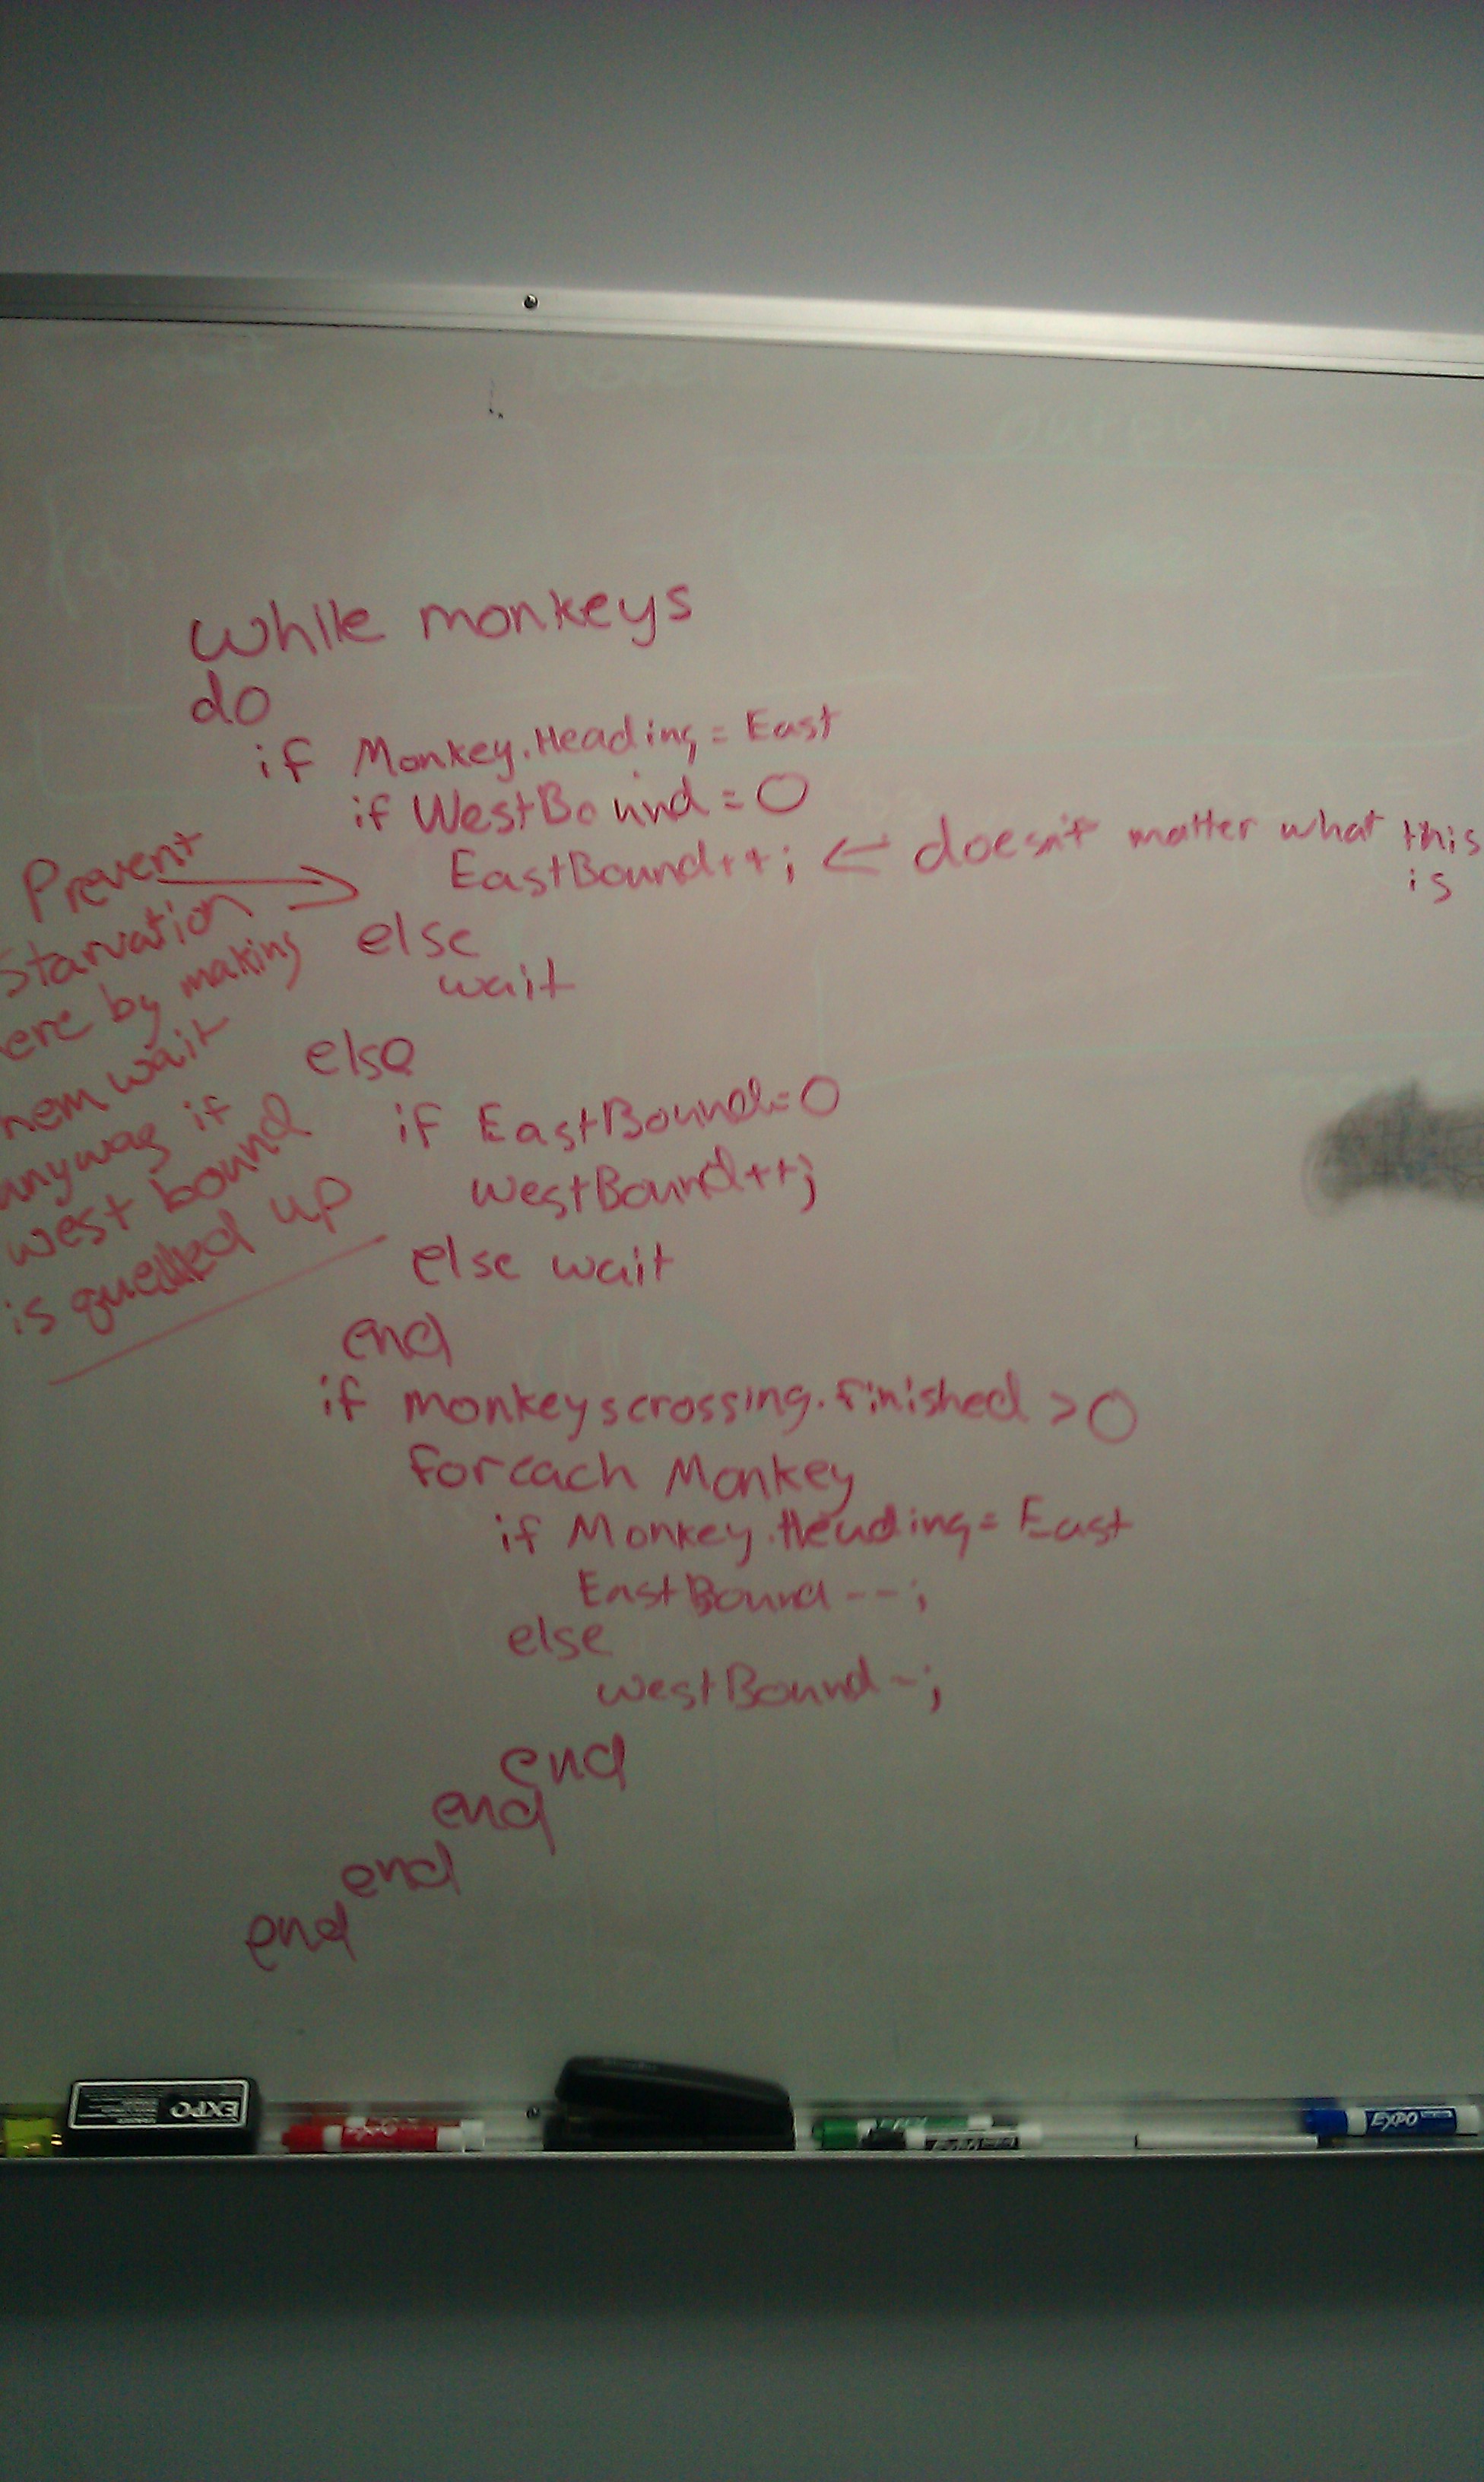 while monkeys
do
if Monkey.Heading = East
if WestBound = 0
EastBound++; ← doesn't matter what this
is
else
wait
else
if EastBound = 0
westBound++;
else wait
end
if monkeyscrossing.finished > 0
foreach Monkey
if Monkey.Heading = East
EastBound--;
else
westBound-;
end
end
end
end
Prevent
Starvation
ere by making
hem wait
anyway if
west bound
is queued up
Input
Output
EXPO
EXPO